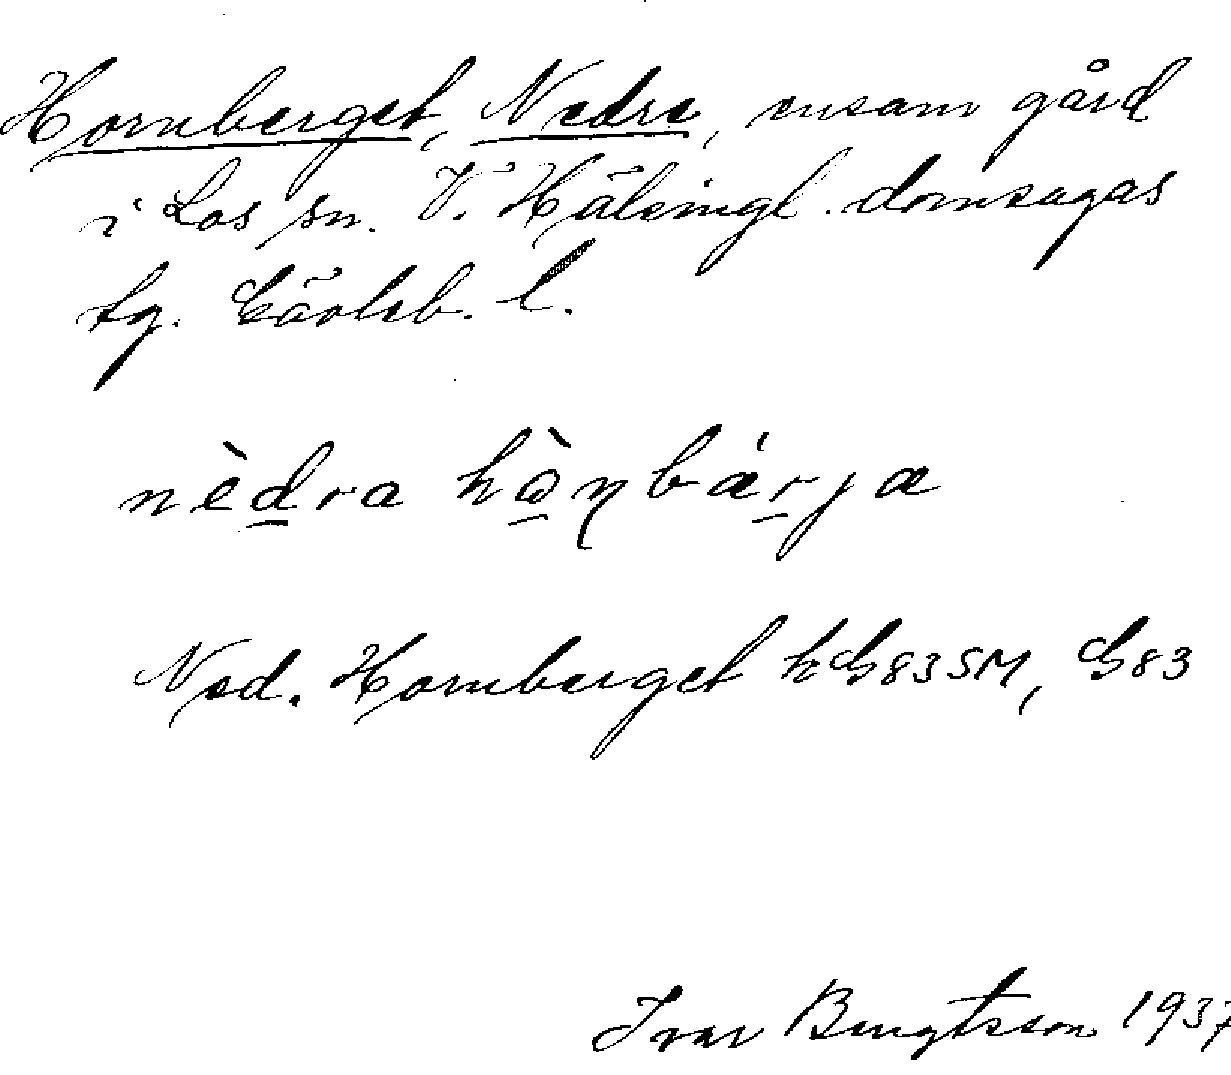 Hornberget, Nedre, ensam gård
i Los sn. V. Hälsingl. domsagas
tg. Gävleb. l.
nèd̲ra hɷ̲̀ɳbár̲ja
Ned. Hornberget hG83SM, G83
Ivar Bengtsson 1937